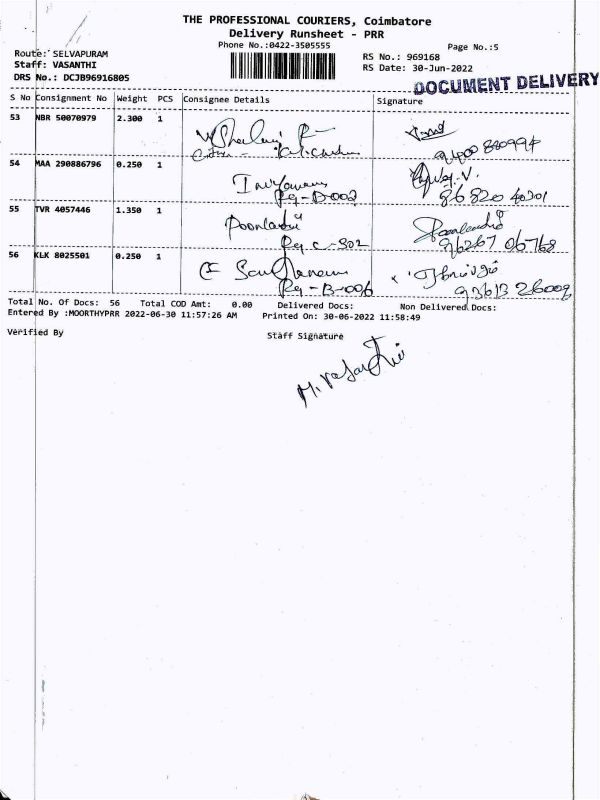 THE PROFESSIONAL COURIERS, Coimbatore
Delivery Runsheet - PRR
Phone No.:0422-3505555
Page No.:5
Route: SELVAPURAM
RS No.: 969168
Staff: VASANTHI
RS Date: 30-Jun-2022
DRS No.: DCJB96916805
DOCUMENT DELIVERY
S No Consignment No Weight PCS Consignee Details Signature
53 NBR 50070979 2.300 1
54 MAA 290886796 0.250 1
Rq-D-002
86820 40301
55 TVR 4057446 1.350 1
Rq C-302
96267 06768
56 KLK 8025501 0.250 1
Rq-B-006
93613 26009
Total No. Of Docs: 56 Total COD Amt: 0.00 Delivered Docs: Non Delivered Docs:
Entered By :MOORTHYPRR 2022-06-30 11:57:26 AM Printed On: 30-06-2022 11:58:49
Verified By Staff Signature